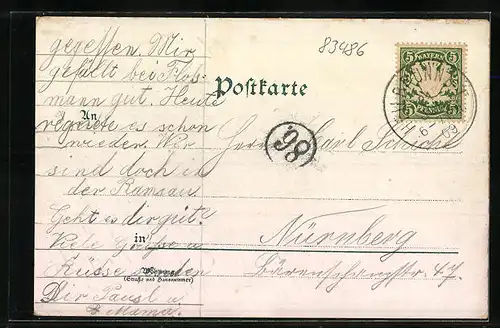 83486
gegessen. Mir
gefällt bei
mann gut. Heute
regnete es schon
wieder. Wir
sind doch in
der Ramsau.
Geht es dir gut?
Viele Grüße u
Küsse senden
Dir Pausl u
Mama.
Postkarte
An
Herrn Karl
in
Nürnberg
Wohnung
(Straße und Hausnummer)
Bärenschanzstr. 47
98
5 BAYERN 5
5 5
09